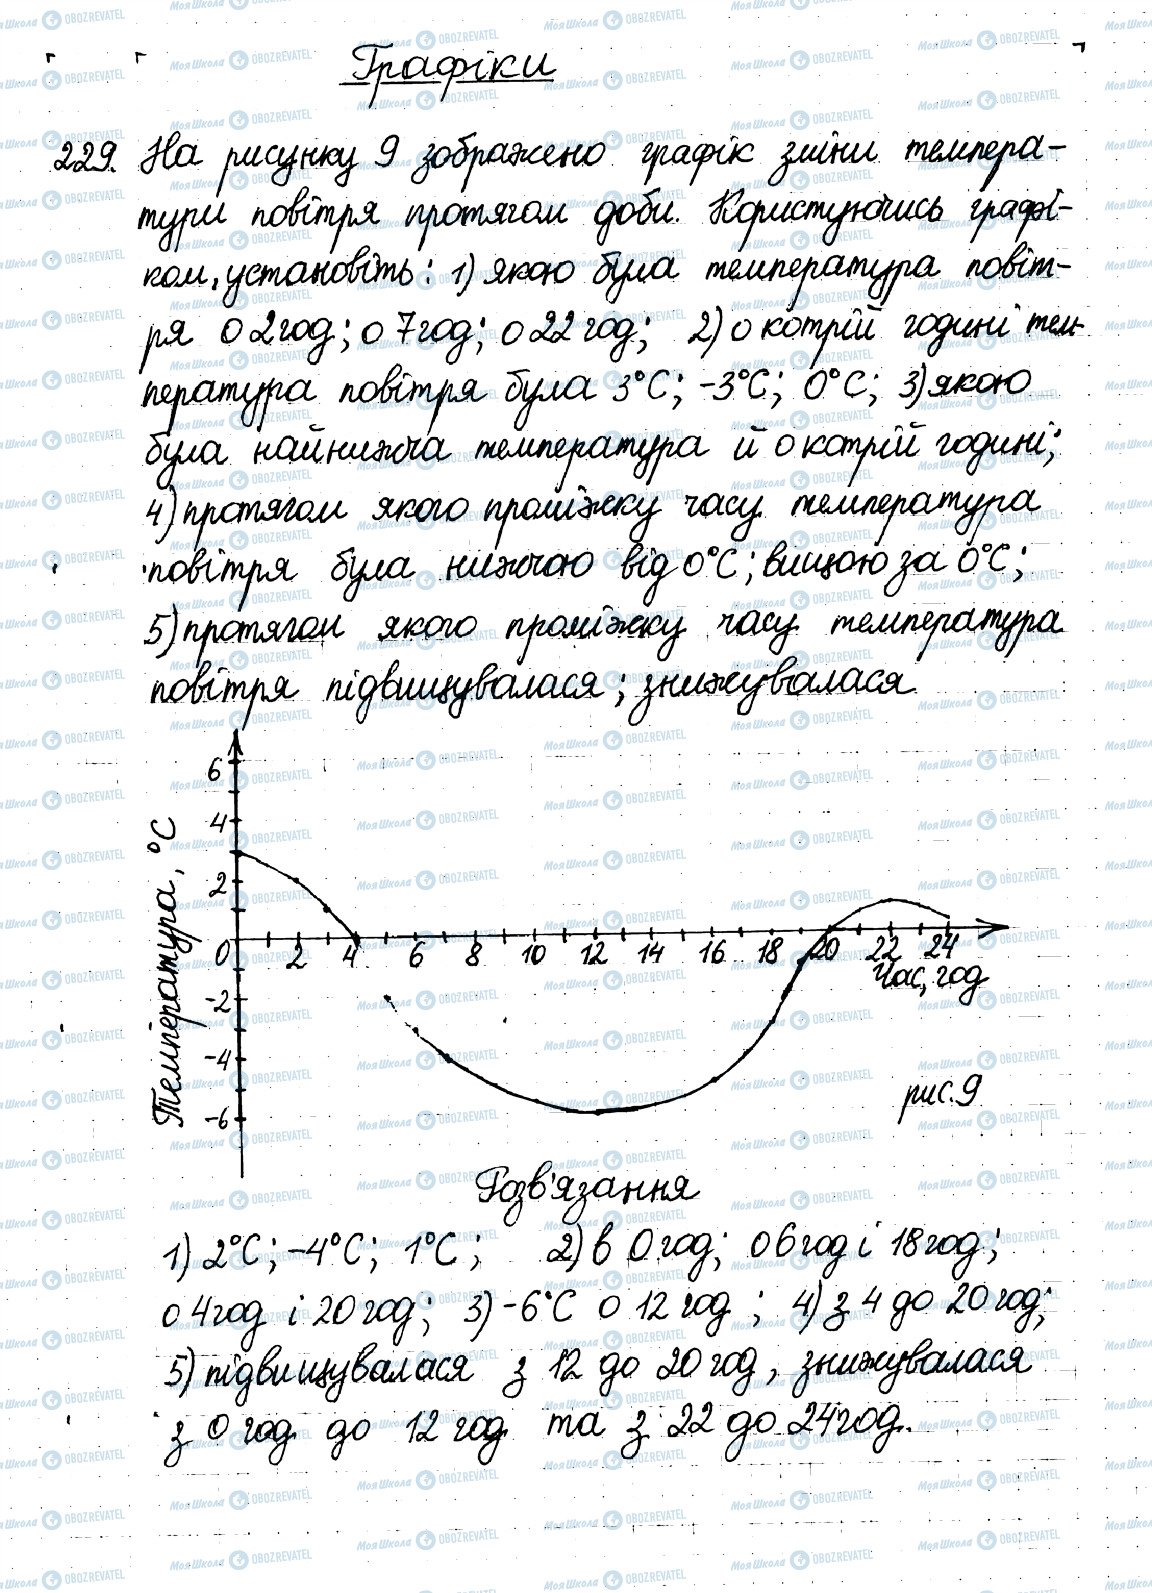 Графіки
229. На рисунку 9 зображено графік зміни темпера-
тури повітря протягом доби. Користуючись графі-
ком, установіть: 1) якою була температура повіт-
ря о 2 год; о 7 год; о 22 год; 2) о котрій годині тем-
пература повітря була 3°С; -3°С; 0°С; 3) якою
була найнижча температура й о котрій годині;
4) протягом якого проміжку часу температура
повітря була нижчою від 0°С; вищою за 0°С;
5) протягом якого проміжку часу температура
повітря підвищувалася; знижувалася.
Температура, °С
6
4
2
0 2 4 6 8 10 12 14 16 18 20 22 24
Час, год
-2
-4
-6
рис. 9
Розв'язання
1) 2°С; -4°С; 1°С; 2) в 0 год; о 6 год і 18 год;
о 4 год і 20 год; 3) -6°С о 12 год; 4) з 4 до 20 год;
5) підвищувалася з 12 до 20 год, знижувалася
з 0 год до 12 год та з 22 до 24 год.
Моя Школа OBOZREVATEL